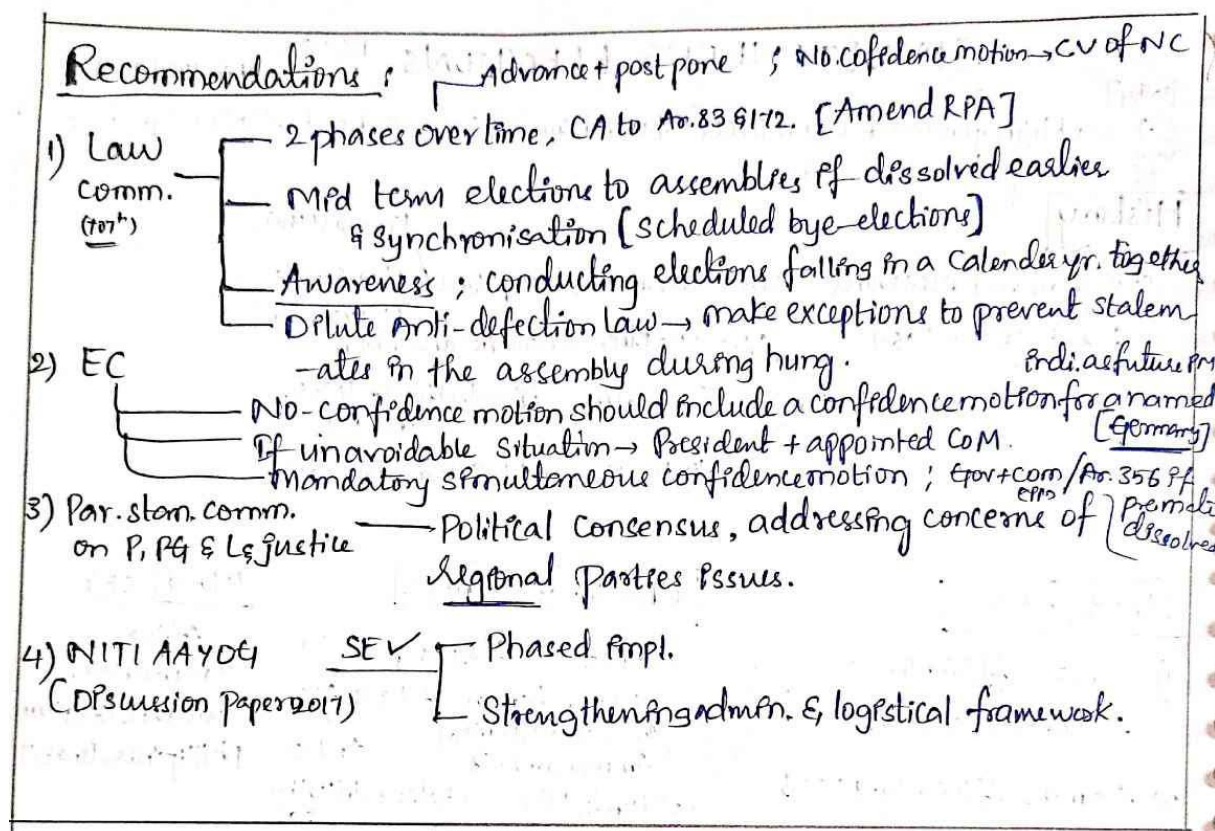 Recommendations :
Advance + post pone ; No. cofedence motion → CV of NC
1) Law Comm. (
2 phases over time, CA to Ar. 83 & 172. [Amend RPA]
Mid term elections to assemblies if dissolved earlier
& synchronisation [scheduled bye-elections]
Awareness ; conducting elections falling in a Calender yr. together
Dilute Anti-defection law → make exceptions to prevent stalem
-ates in the assembly during hung.
2) EC
indi. as future PM
No-confidence motion should include a confidence motion for a named
[Germany]
If unavoidable situation → President + appointed CoM.
Mandatory simultaneous confidence motion ; Gov + com / Ar. 356 if
dissolved
3) Par. stan. comm.
on P, PG & L & justice
Political Consensus, addressing concerns of
regional parties issues.
4) NITI AAYOG
(Discussion paper 2017)
SE ✓
Phased impl.
Strengthening admin. & logistical framework.